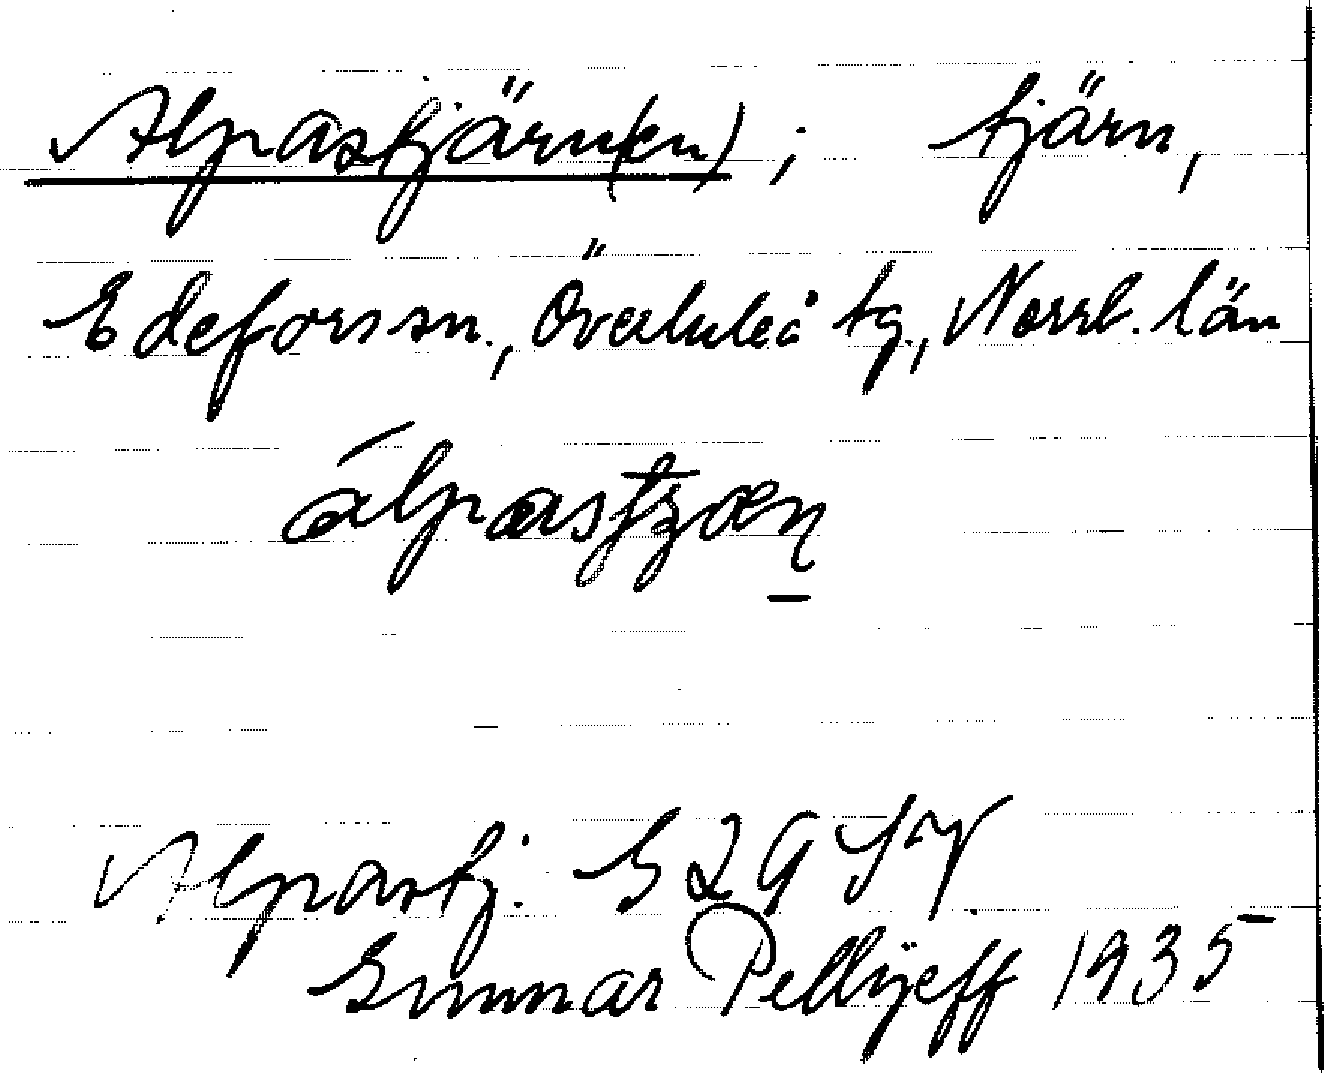 Alpastjärn(en); tjärn,
Edefors sn., Överluleå tg., Norrb. län
álpastjæn
Alpastj. G 29
Gunnar Pellijeff 1935